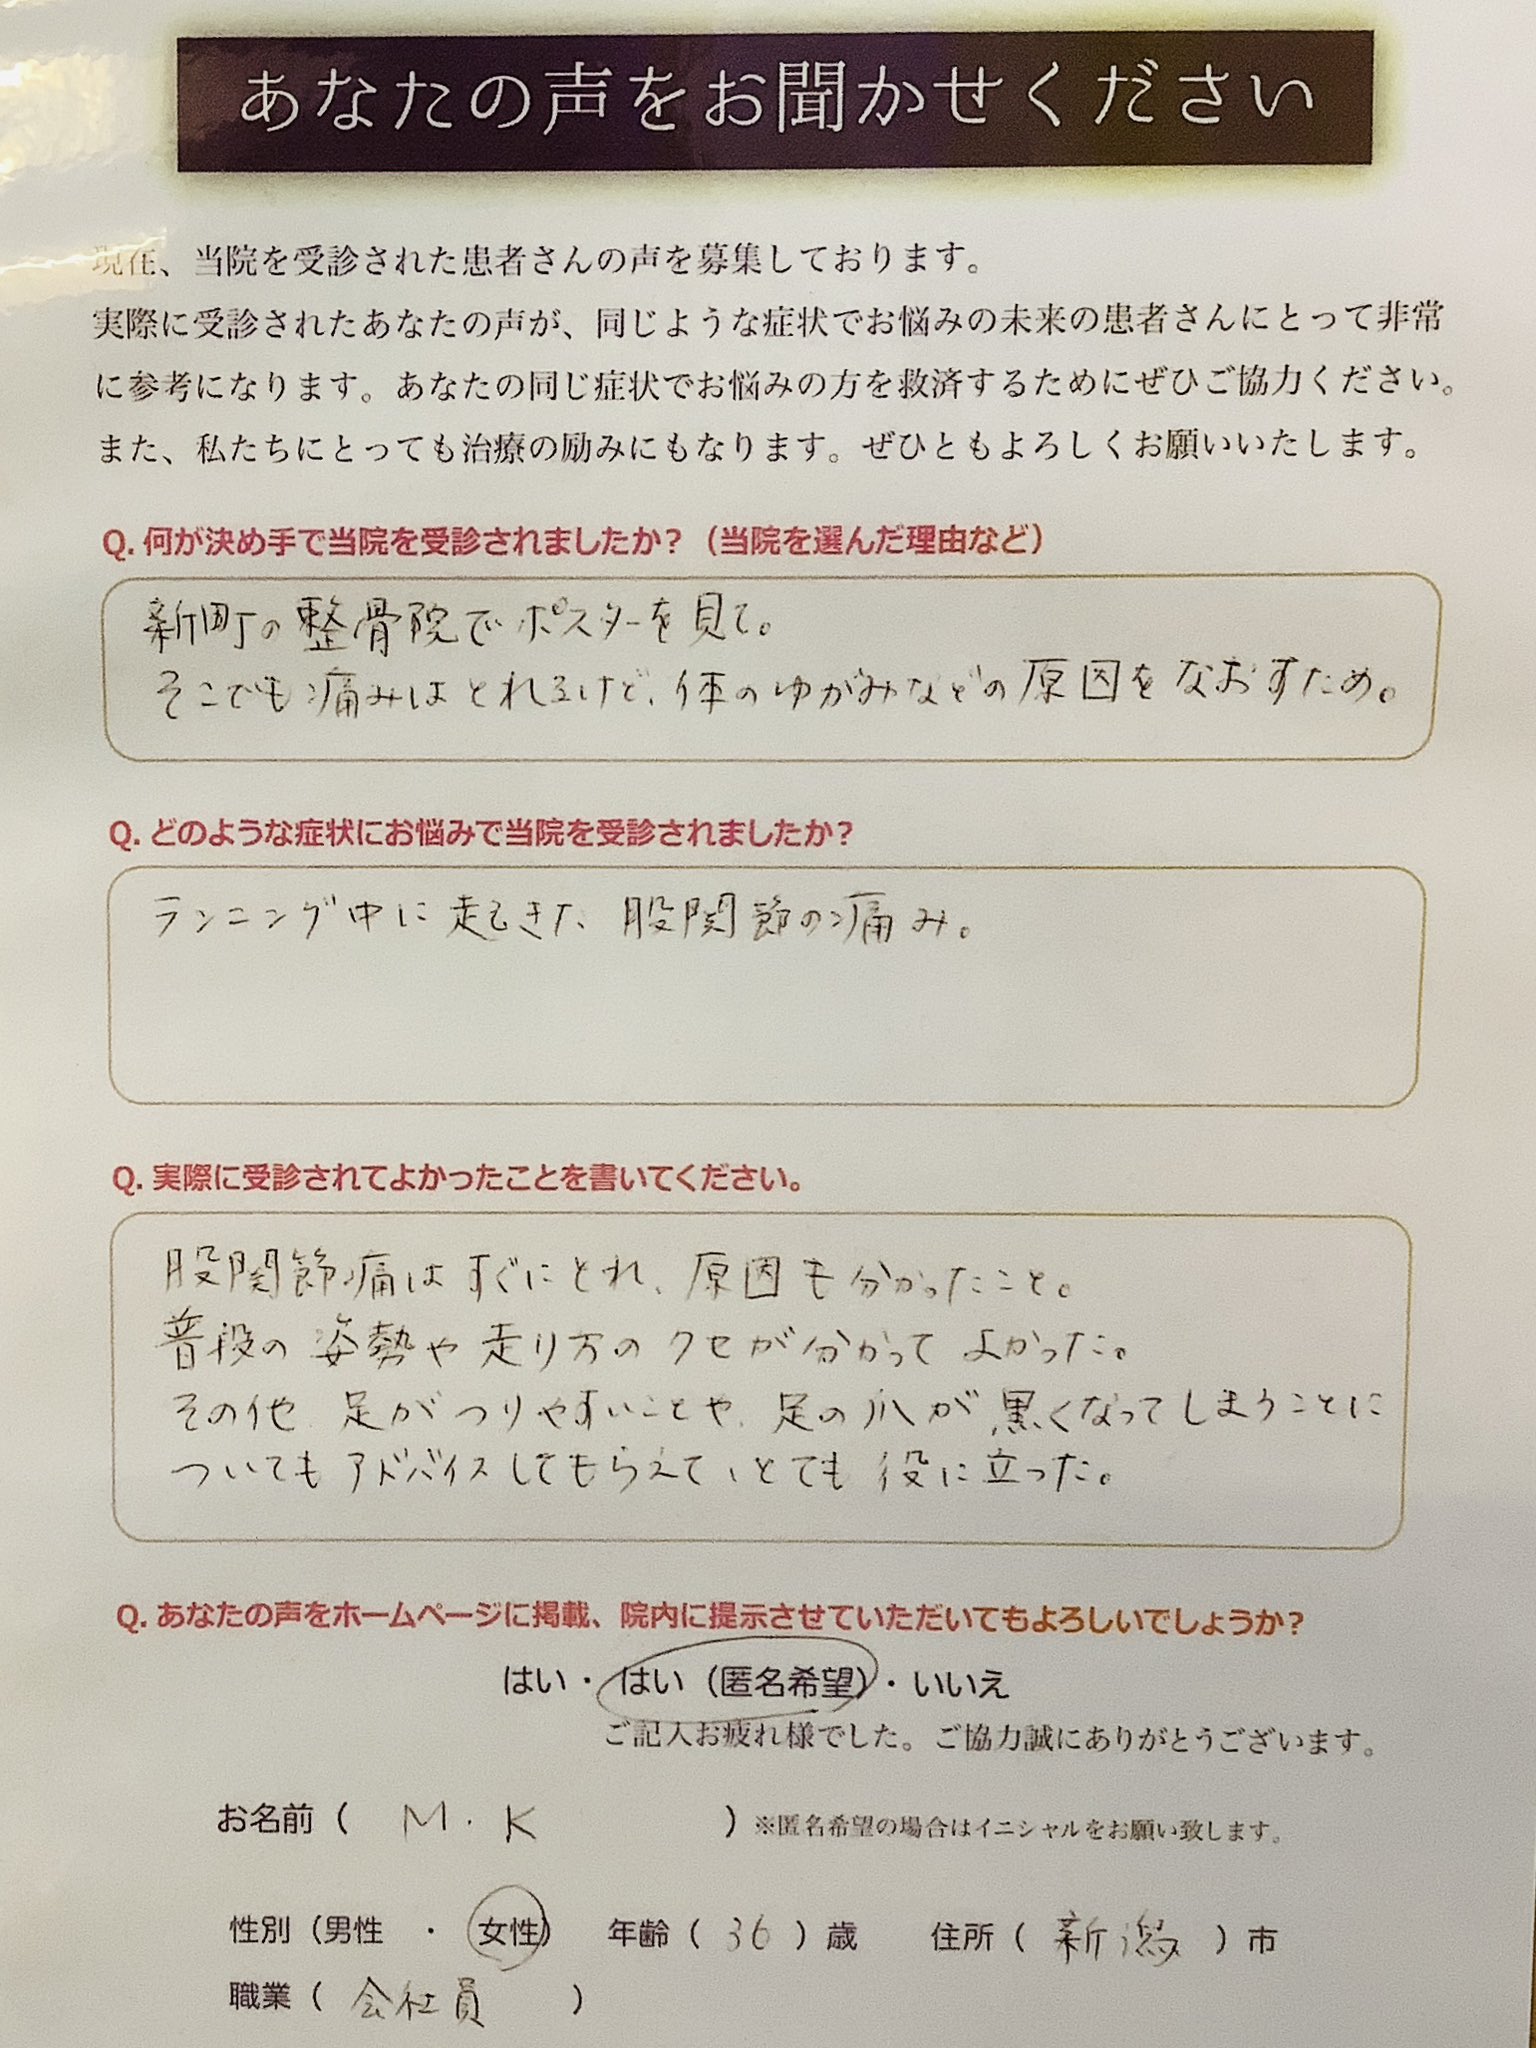 あなたの声をお聞かせください
現在、当院を受診された患者さんの声を募集しております。
実際に受診されたあなたの声が、同じような症状でお悩みの未来の患者さんにとって非常
に参考になります。あなたの同じ症状でお悩みの方を救済するためにぜひご協力ください。
また、私たちにとっても治療の励みにもなります。ぜひともよろしくお願いいたします。
Q. 何が決め手で当院を受診されましたか？（当院を選んだ理由など）
新町の整骨院でポスターを見て。
そこでも痛みはとれるけど、体のゆがみなどの原因をなおすため。
Q. どのような症状にお悩みで当院を受診されましたか？
ランニング中に起きた、股関節の痛み。
Q. 実際に受診されてよかったことを書いてください。
股関節痛はすぐにとれ、原因も分かったこと。
普段の姿勢や走り方のクセが分かって よかった。
その他 足がつりやすいことや、足の爪が黒くなってしまうことに
ついてもアドバイスしてもらえて、とても役に立った。
Q. あなたの声をホームページに掲載、院内に提示させていただいてもよろしいでしょうか？
はい・はい（匿名希望）・いいえ
ご記入お疲れ様でした。ご協力誠にありがとうございます。
お名前（ M.K ）※匿名希望の場合はイニシャルをお願い致します。
性別（男性 ・ 女性） 年齢（ 36 ）歳 住所（ 新潟 ）市
職業（ 会社員 ）